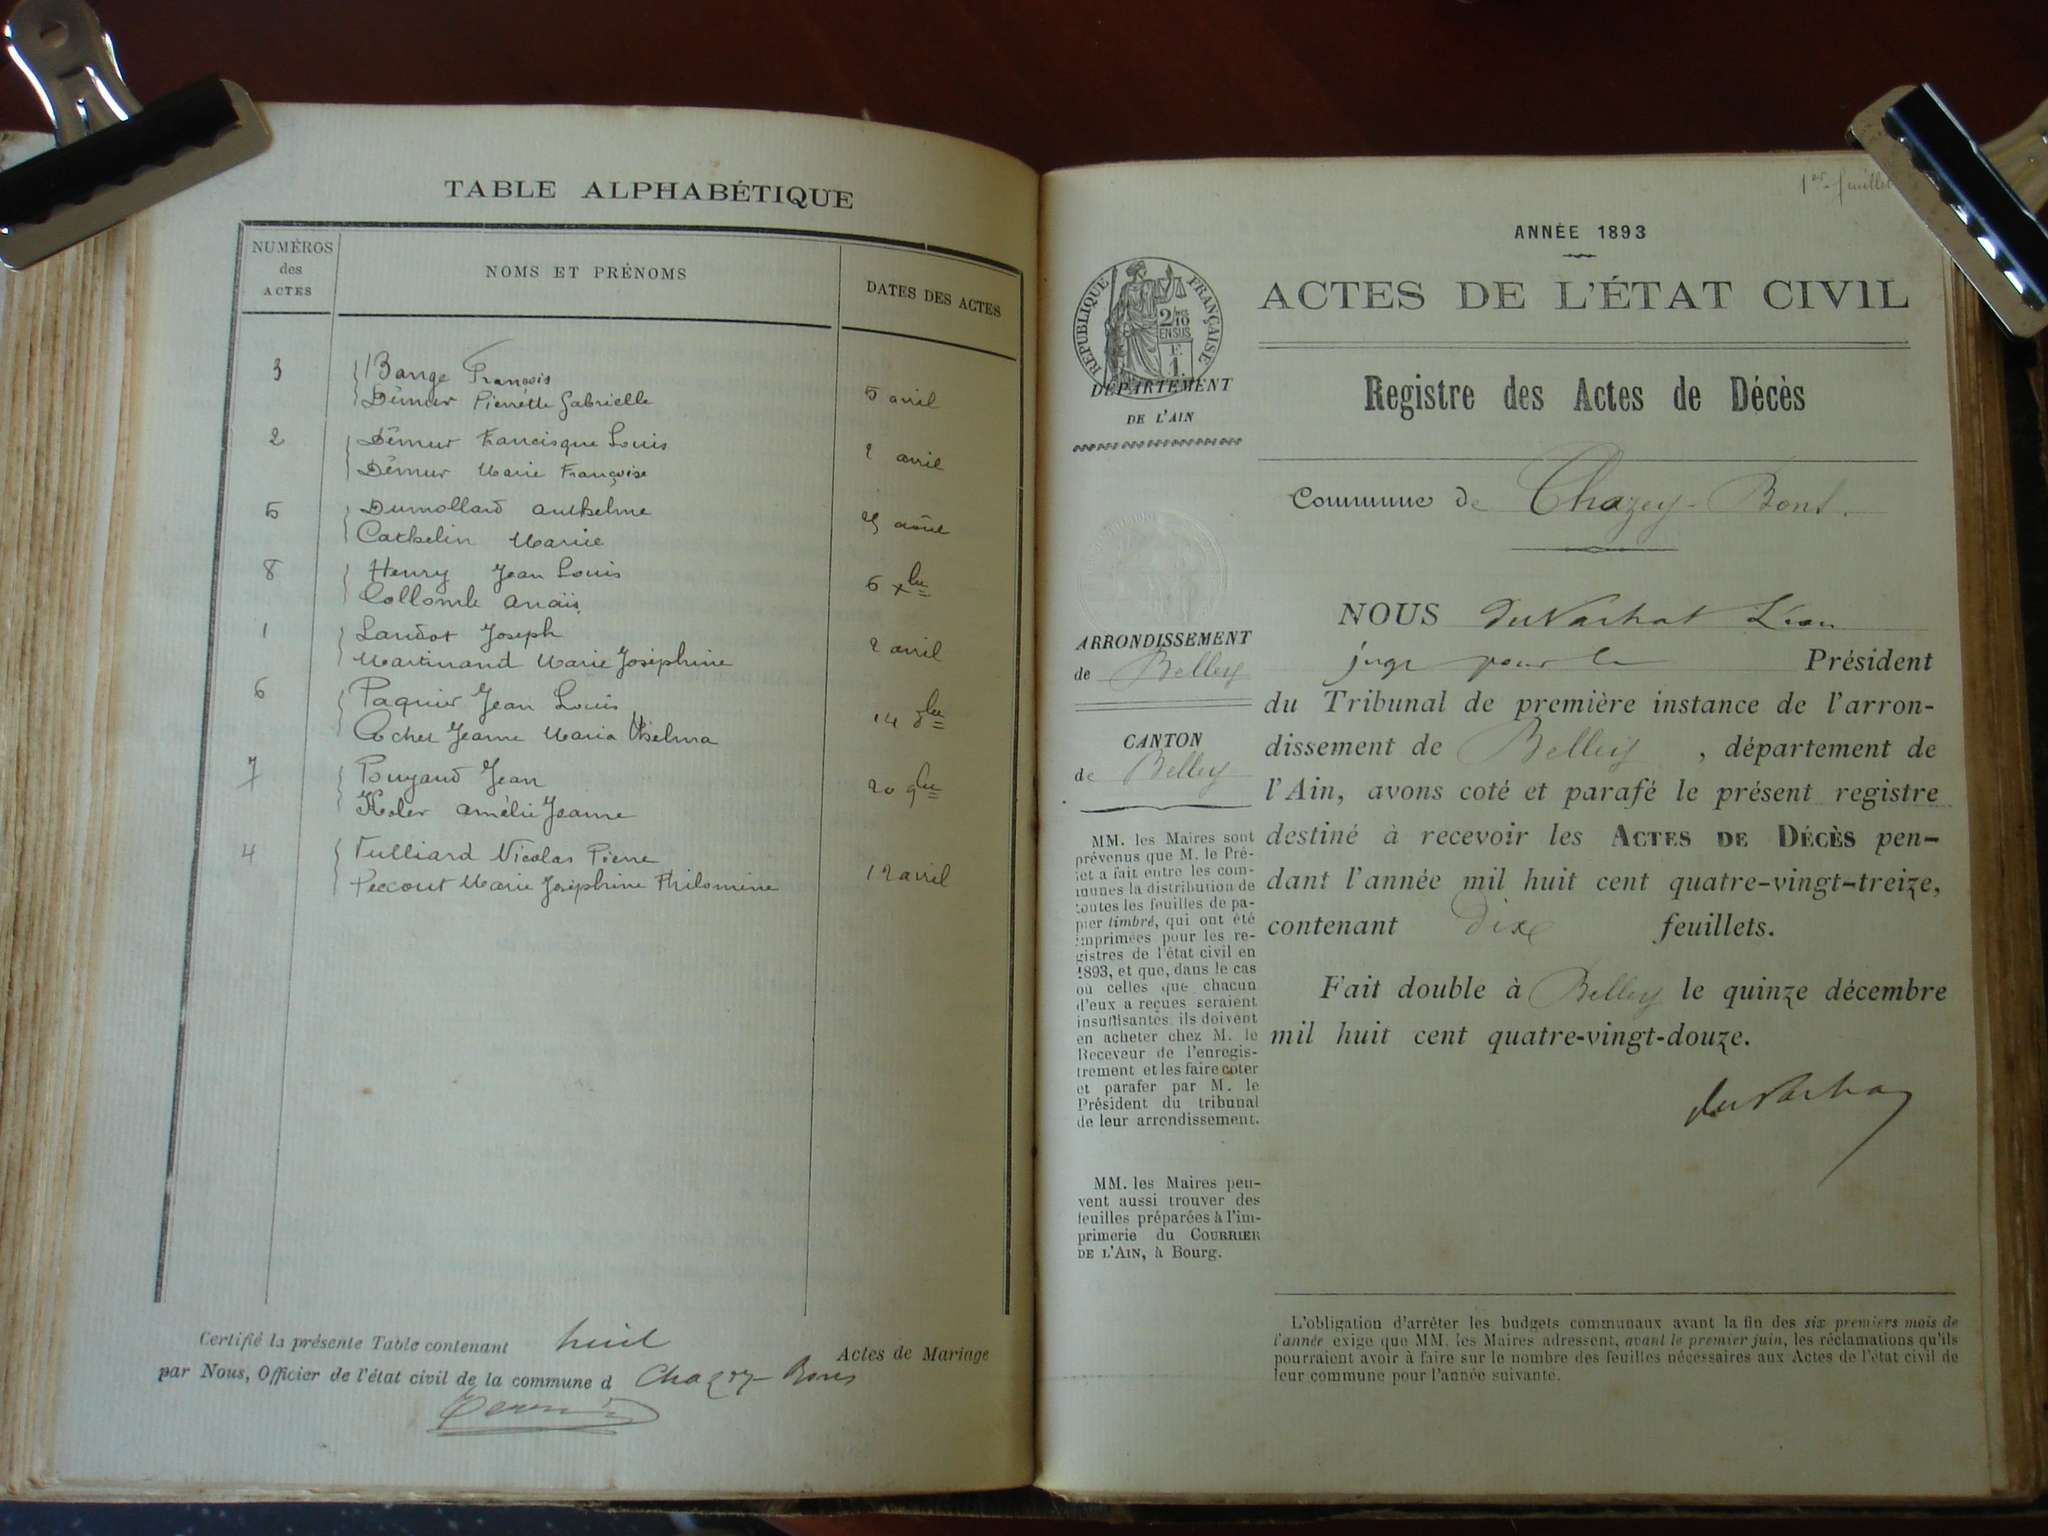 TABLE ALPHABÉTIQUE
NUMÉROS des ACTES
NOMS ET PRÉNOMS
DATES DES ACTES
3 Bange François
Démur Pierrette Gabrielle 5 avril
2 Démur Francisque Louis
Démur Marie Françoise 2 avril
5 Dumollard Anthelme
Cathelin Marie août
8 Henry Jean Louis
Collomb Anaïs 6 xbre
1 Landot Joseph
Martinand Marie Joséphine 2 avril
6 Paquier Jean Louis
Cochet Jeanne Maria 14 8bre
7 Buyaud Jean
Amélie Jeanne 20 9bre
4 Tulliard Nicolas Pierre
Peccout Marie Joséphine Philomène 12 avril
Certifié la présente Table contenant huit Actes de Mariage
par Nous, Officier de l'état civil de la commune d Chazey-Bons
1er feuillet
ANNÉE 1893
ACTES DE L'ÉTAT CIVIL
RÉPUBLIQUE FRANÇAISE
2/10
EN SUS
DÉPARTEMENT
DE L'AIN
Registre des Actes de Décès
Commune de Chazey-Bons.
NOUS du Varhat Léon
juge pour le Président
du Tribunal de première instance de l'arron-
dissement de Belley, département de
l'Ain, avons coté et parafé le présent registre
destiné à recevoir les ACTES DE DÉCÈS pen-
dant l'année mil huit cent quatre-vingt-treize,
contenant dix feuillets.
Fait double à Belley le quinze décembre
mil huit cent quatre-vingt-douze.
ARRONDISSEMENT
de Belley
CANTON
de Belley
MM. les Maires sont
prévenus que M. le Pré-
fet a fait entre les com-
munes la distribution de
toutes les feuilles de pa-
pier timbré, qui ont été
imprimées pour les re-
gistres de l'état civil en
1893, et que, dans le cas
où celles que chacun
d'eux a reçues seraient
insuffisantes, ils doivent
en acheter chez M. le
Receveur de l'enregis-
trement et les faire coter
et parafer par M. le
Président du tribunal
de leur arrondissement.
MM. les Maires peu-
vent aussi trouver des
feuilles préparées à l'im-
primerie du COURRIER
DE L'AIN, à Bourg.
L'obligation d'arrêter les budgets communaux avant la fin des six premiers mois de
l'année exige que MM. les Maires adressent, avant le premier juin, les réclamations qu'ils
pourraient avoir à faire sur le nombre des feuilles nécessaires aux Actes de l'état civil de
leur commune pour l'année suivante.